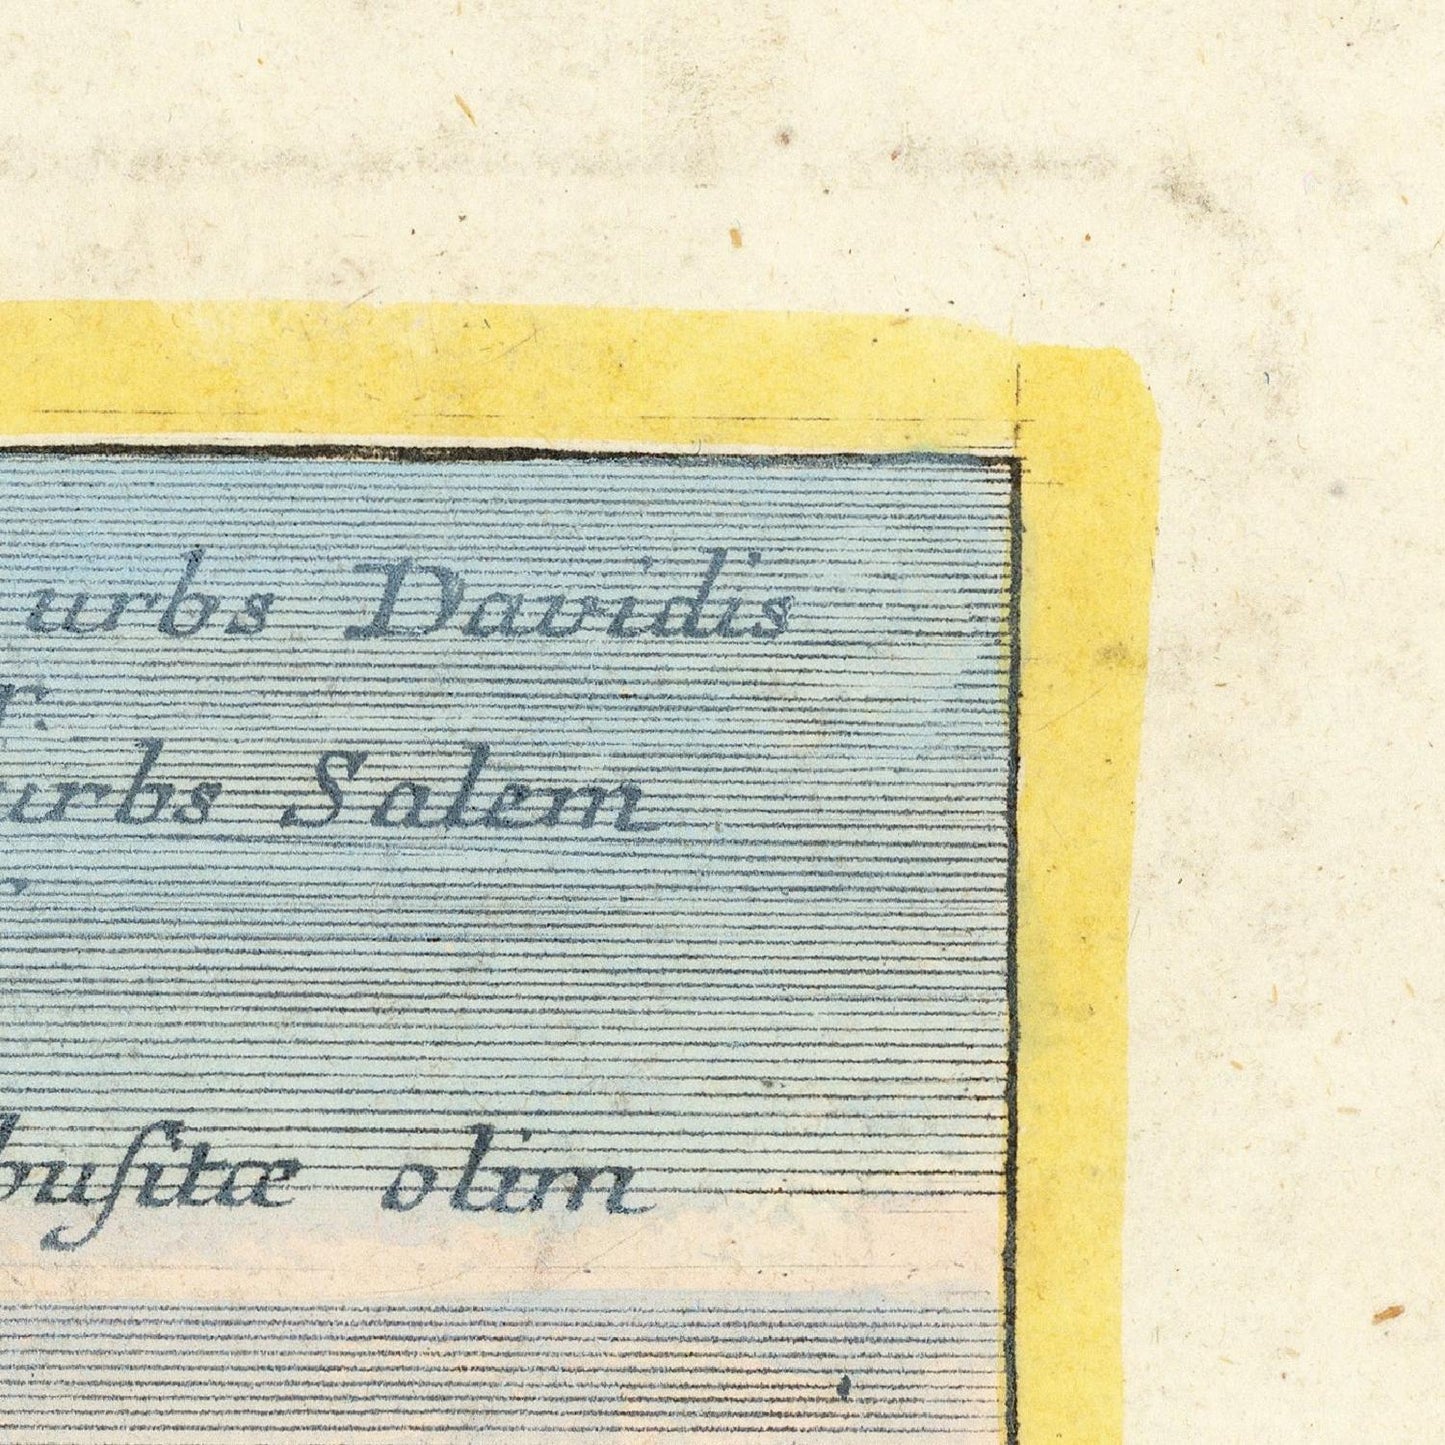 urbs Davidis
urbs Salem
buſitæ olim